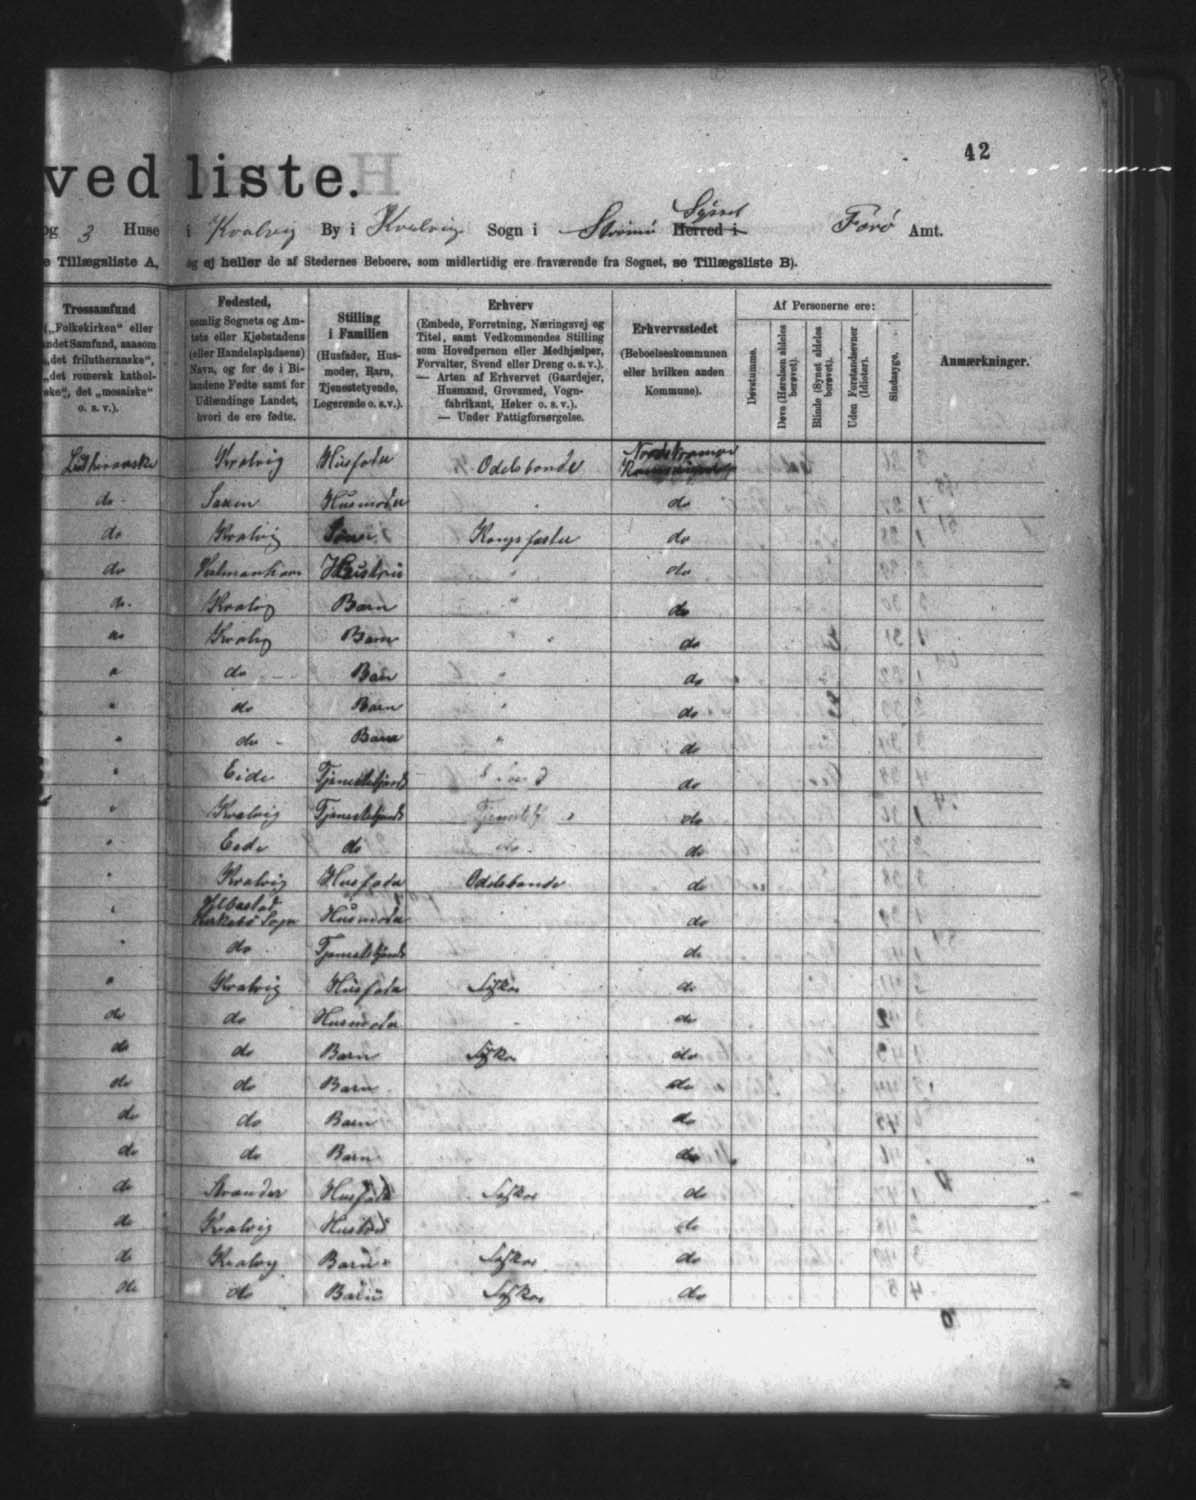 42
ved liste.
og 3 Huse i Kvalvig By i Kvalvig Sogn i Strømø Syssel Herred i Færø Amt.
e Tillægsliste A, og ej heller de af Stedernes Beboere, som midlertidig ere fraværende fra Sognet, se Tillægsliste B).
Trossamfund
(„Folkekirken“ eller
andet Samfund, saasom
„det frilutheranske“,
„det romersk kathol-
ske“, det „mosaiske“
o. s. v.).
Fødested,
nemlig Sognets og Am-
tets eller Kjøbstadens
(eller Handelspladsens)
Navn, og for de i Bi-
landene Fødte samt for
Udlændinge Landet,
hvori de ere fødte.
Stilling
i Familien
(Husfader, Hus-
moder, Barn,
Tjenestetyende,
Logerende o. s. v.).
Erhverv
(Embede, Forretning, Næringsvej og
Titel, samt Vedkommendes Stilling
som Hovedperson eller Medhjælper,
Forvalter, Svend eller Dreng o. s. v.).
— Arten af Erhvervet (Gaardejer,
Husmand, Grovsmed, Vogn-
fabrikant, Høker o. s. v.).
— Under Fattigforsørgelse.
Erhvervsstedet
(Beboelseskommunen
eller hvilken anden
Kommune).
Af Personerne ere:
Døvstumme.
Døve (Hørelsen aldeles
berøvet).
Blinde (Synet aldeles
berøvet).
Uden Forstandsevner
(Idioter).
Sindssyge.
Anmærkninger.
Lutheranske Kvalvig Husfader Odelsbonde Nordstrømø
do Saxen Husmoder " do
do Kvalvig Søn Kongsfæster do
do Hustru " do
do Kvalvig Barn " do
do Kvalvig Barn " do
" do Barn " do
" do Barn " do
" do Barn " do
" Eide Tjenestetyende do
" Kvalvig Tjenestetyende do
" Eide do do do
" Kvalvig Husfader Odelsbonde do
" Sogn Husmoder do
" do Tjenestetyende do
" Kvalvig Husfader Fisker do
do do Husmoder do
do do Barn Fisker do
do do Barn do
do do Barn do
do do Barn do
do Strander Husfader Fisker do
do Kvalvig Hustru do
do Kvalvig Barn Fisker do
do do Barn Fisker do